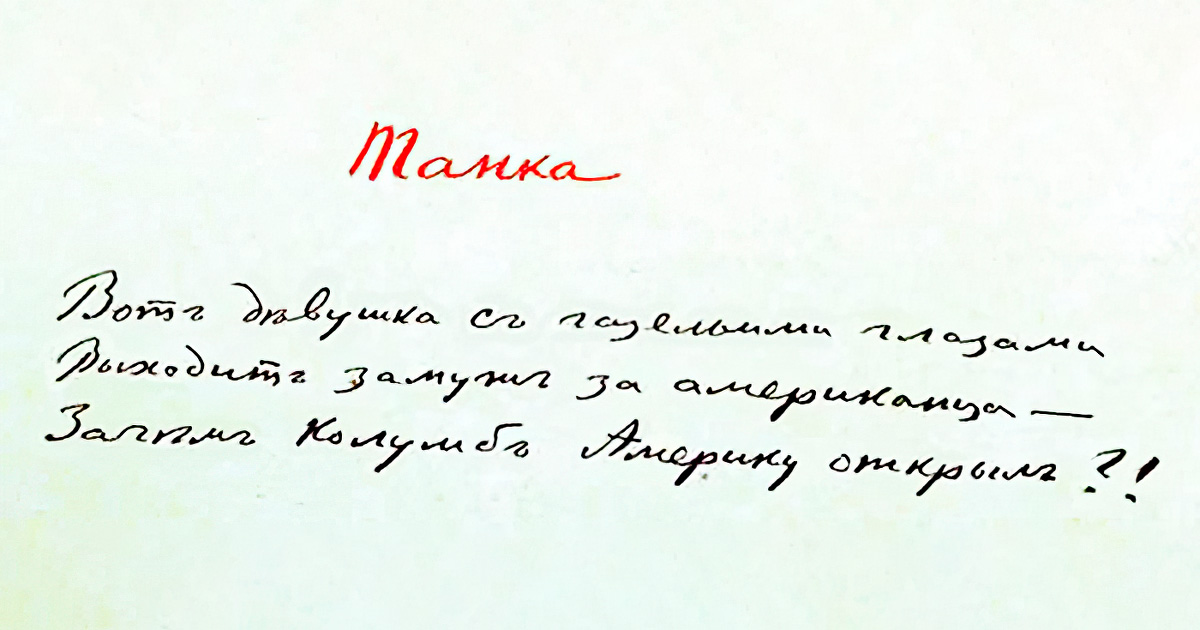 Танка
Вотъ дѣвушка съ газельими глазами
Выходитъ замужъ за американца —
Зачѣмъ Колумбъ Америку открылъ?!